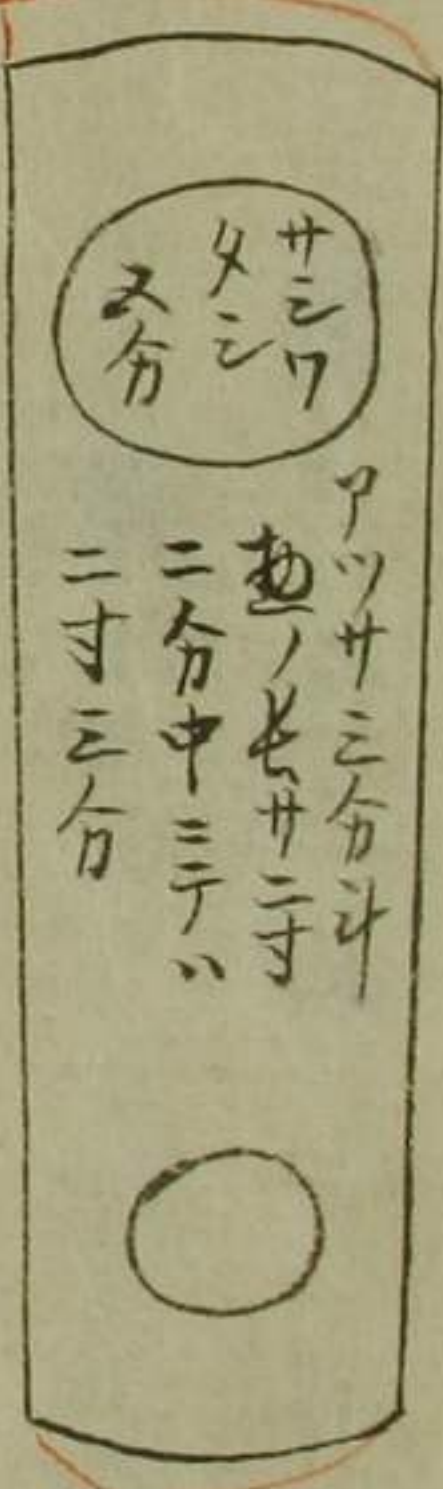 サシワ
タシ
五分
アツサ三分斗
惣ノ長サ二寸
二分中ニテハ
二寸三分